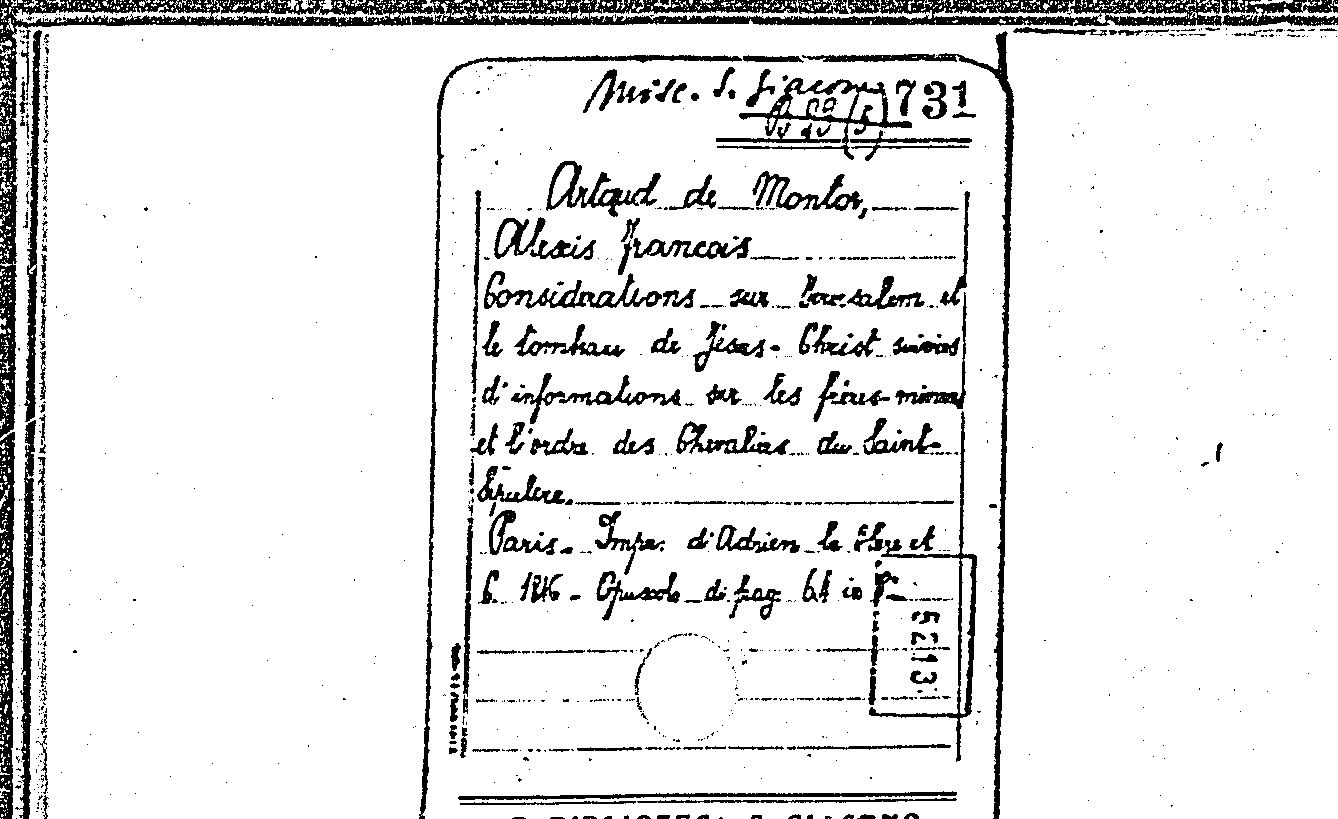 Misc. S. Giacomo 731
(5)
Artaud de Montor,
Alexis francois
Considerations sur Jerusalem et
le tombeau de Jésus-Christ suivies
d'informations sur les frères-mineurs
et l'ordre des Chevaliers du Saint-
Sépulcre.
Paris. Impr. d'Adrien le Clere et
C. 1846 - Opuscolo di pag 64 in 8°
5213